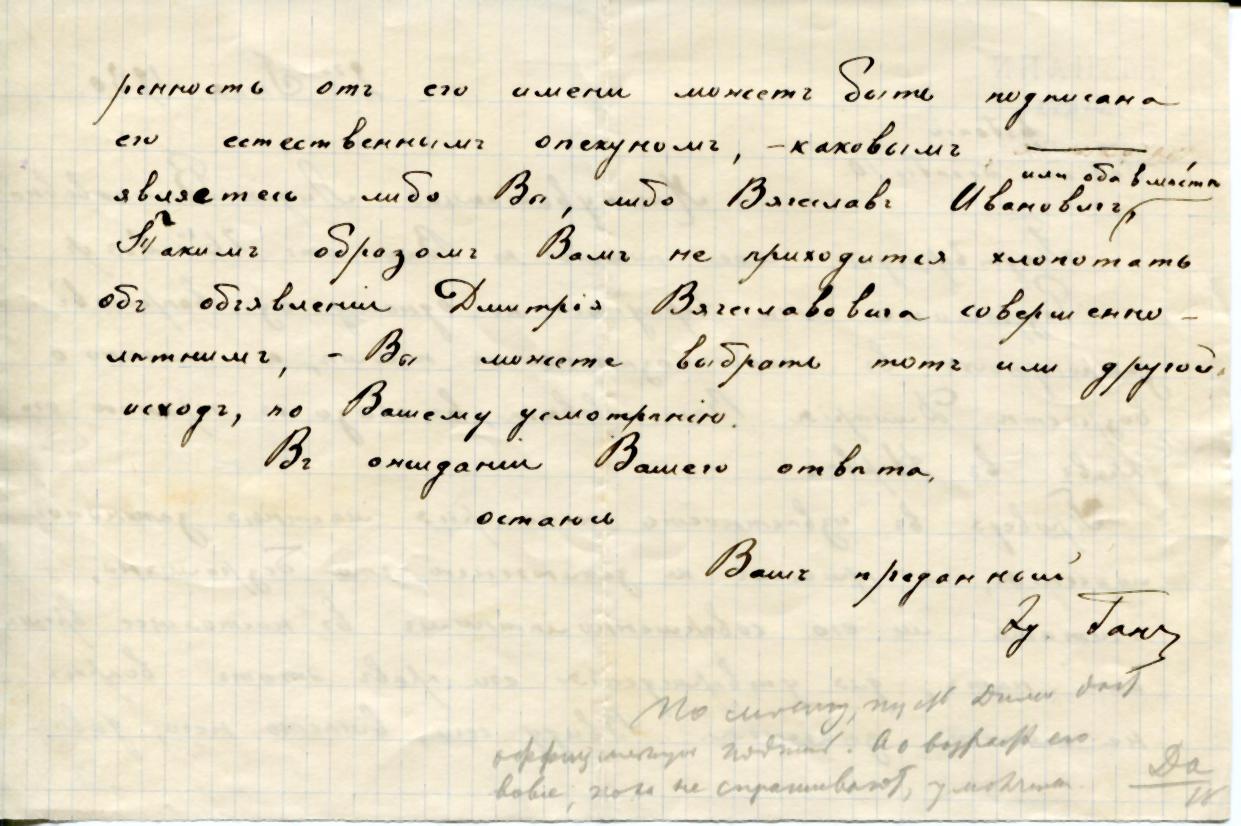 ренность отъ его имени можетъ быть подписана
его естественнымъ опекуномъ, – каковымъ
или оба вмѣстѣ
являетесь либо Вы, либо Вячеславъ Ивановичъ,
Такимъ образомъ Вамъ не приходится хлопотать
объ объявленіи Дмитрія Вячеславовича совершенно-
лѣтнимъ, – Вы можете выбрать тотъ или другой
исходъ, по Вашему усмотрѣнію.
Въ ожиданіи Вашего отвѣта,
остаюсь
Вашъ преданный
Ганч
По моему, пусть Дима даст
. А о возрасте его
вовсе, пока не спрашивают,
Да